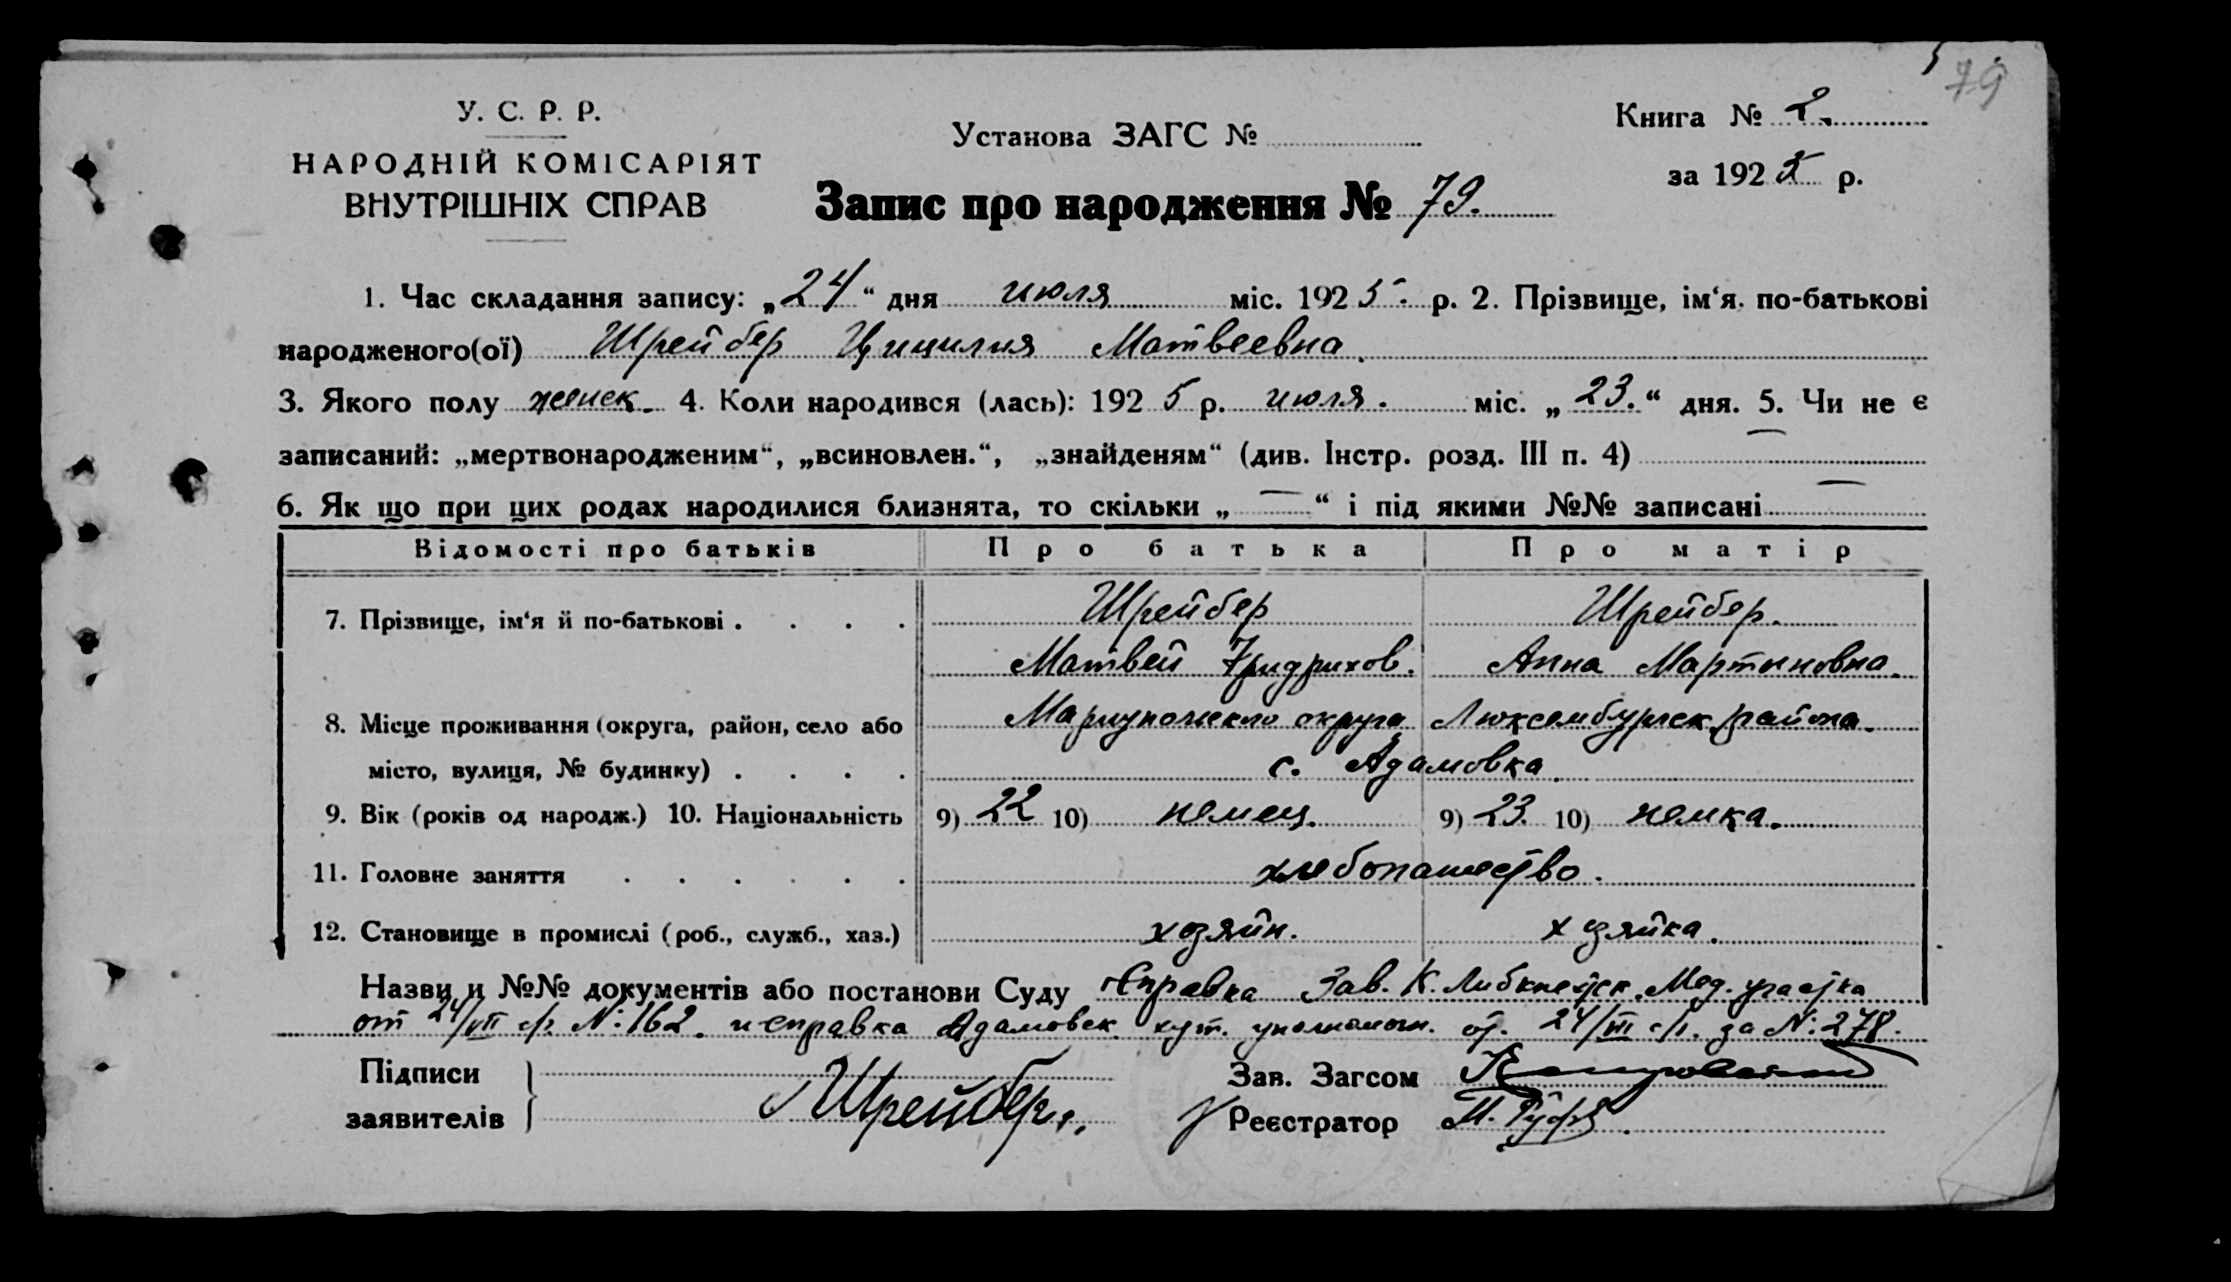 79
У. С. Р. Р.
НАРОДНІЙ КОМІСАРІЯТ
ВНУТРІШНІХ СПРАВ
Установа ЗАГС №
Книга № 2.
за 1925 р.
Запис про народження № 79.
1. Час складання запису: „24“ дня июля міс. 1925. р. 2. Прізвище, ім‘я, по-батькові
народженого(ої) Шрейбер Цицилия Матвеевна.
3. Якого полу женск. 4. Коли народився (лась): 1925 р. июля. міс. „23.“ дня. 5. Чи не є
записаний: „мертвонародженим“, „всиновлен.“, „знайденям“ (див. Інстр. розд. III п. 4) —
6. Як що при цих родах народилися близнята, то скільки „—“ і під якими №№ записані —
Відомості про батьків Про батька Про матір
7. Прізвище, ім‘я й по-батькові . . . . Шрейбер Шрейбер.
Матвей Фридрихов. Анна Мартыновна.
8. Місце проживання (округа, район, село або Мариупольского округа Люксембургск. района.
місто, вулиця, № будинку) . . . . с. Адамовка.
9. Вік (років од народж.) 10. Національність 9) 22 10) немец. 9) 23. 10) немка.
11. Головне заняття . . . . . . хлебопашество.
12. Становище в промислі (роб., служб., хаз.) хозяйн. хозяйка.
Назви и №№ документів або постанови Суду Справка Зав. К. Либкнехтск. Мед. участка
от 24/VII с/г N: 162. и справка Адамовск. хут. уполномоч. от. 24/VII с/г. за N: 278.
Підписи
заявителів
Шрейбер
Зав. Загсом
Реєстратор